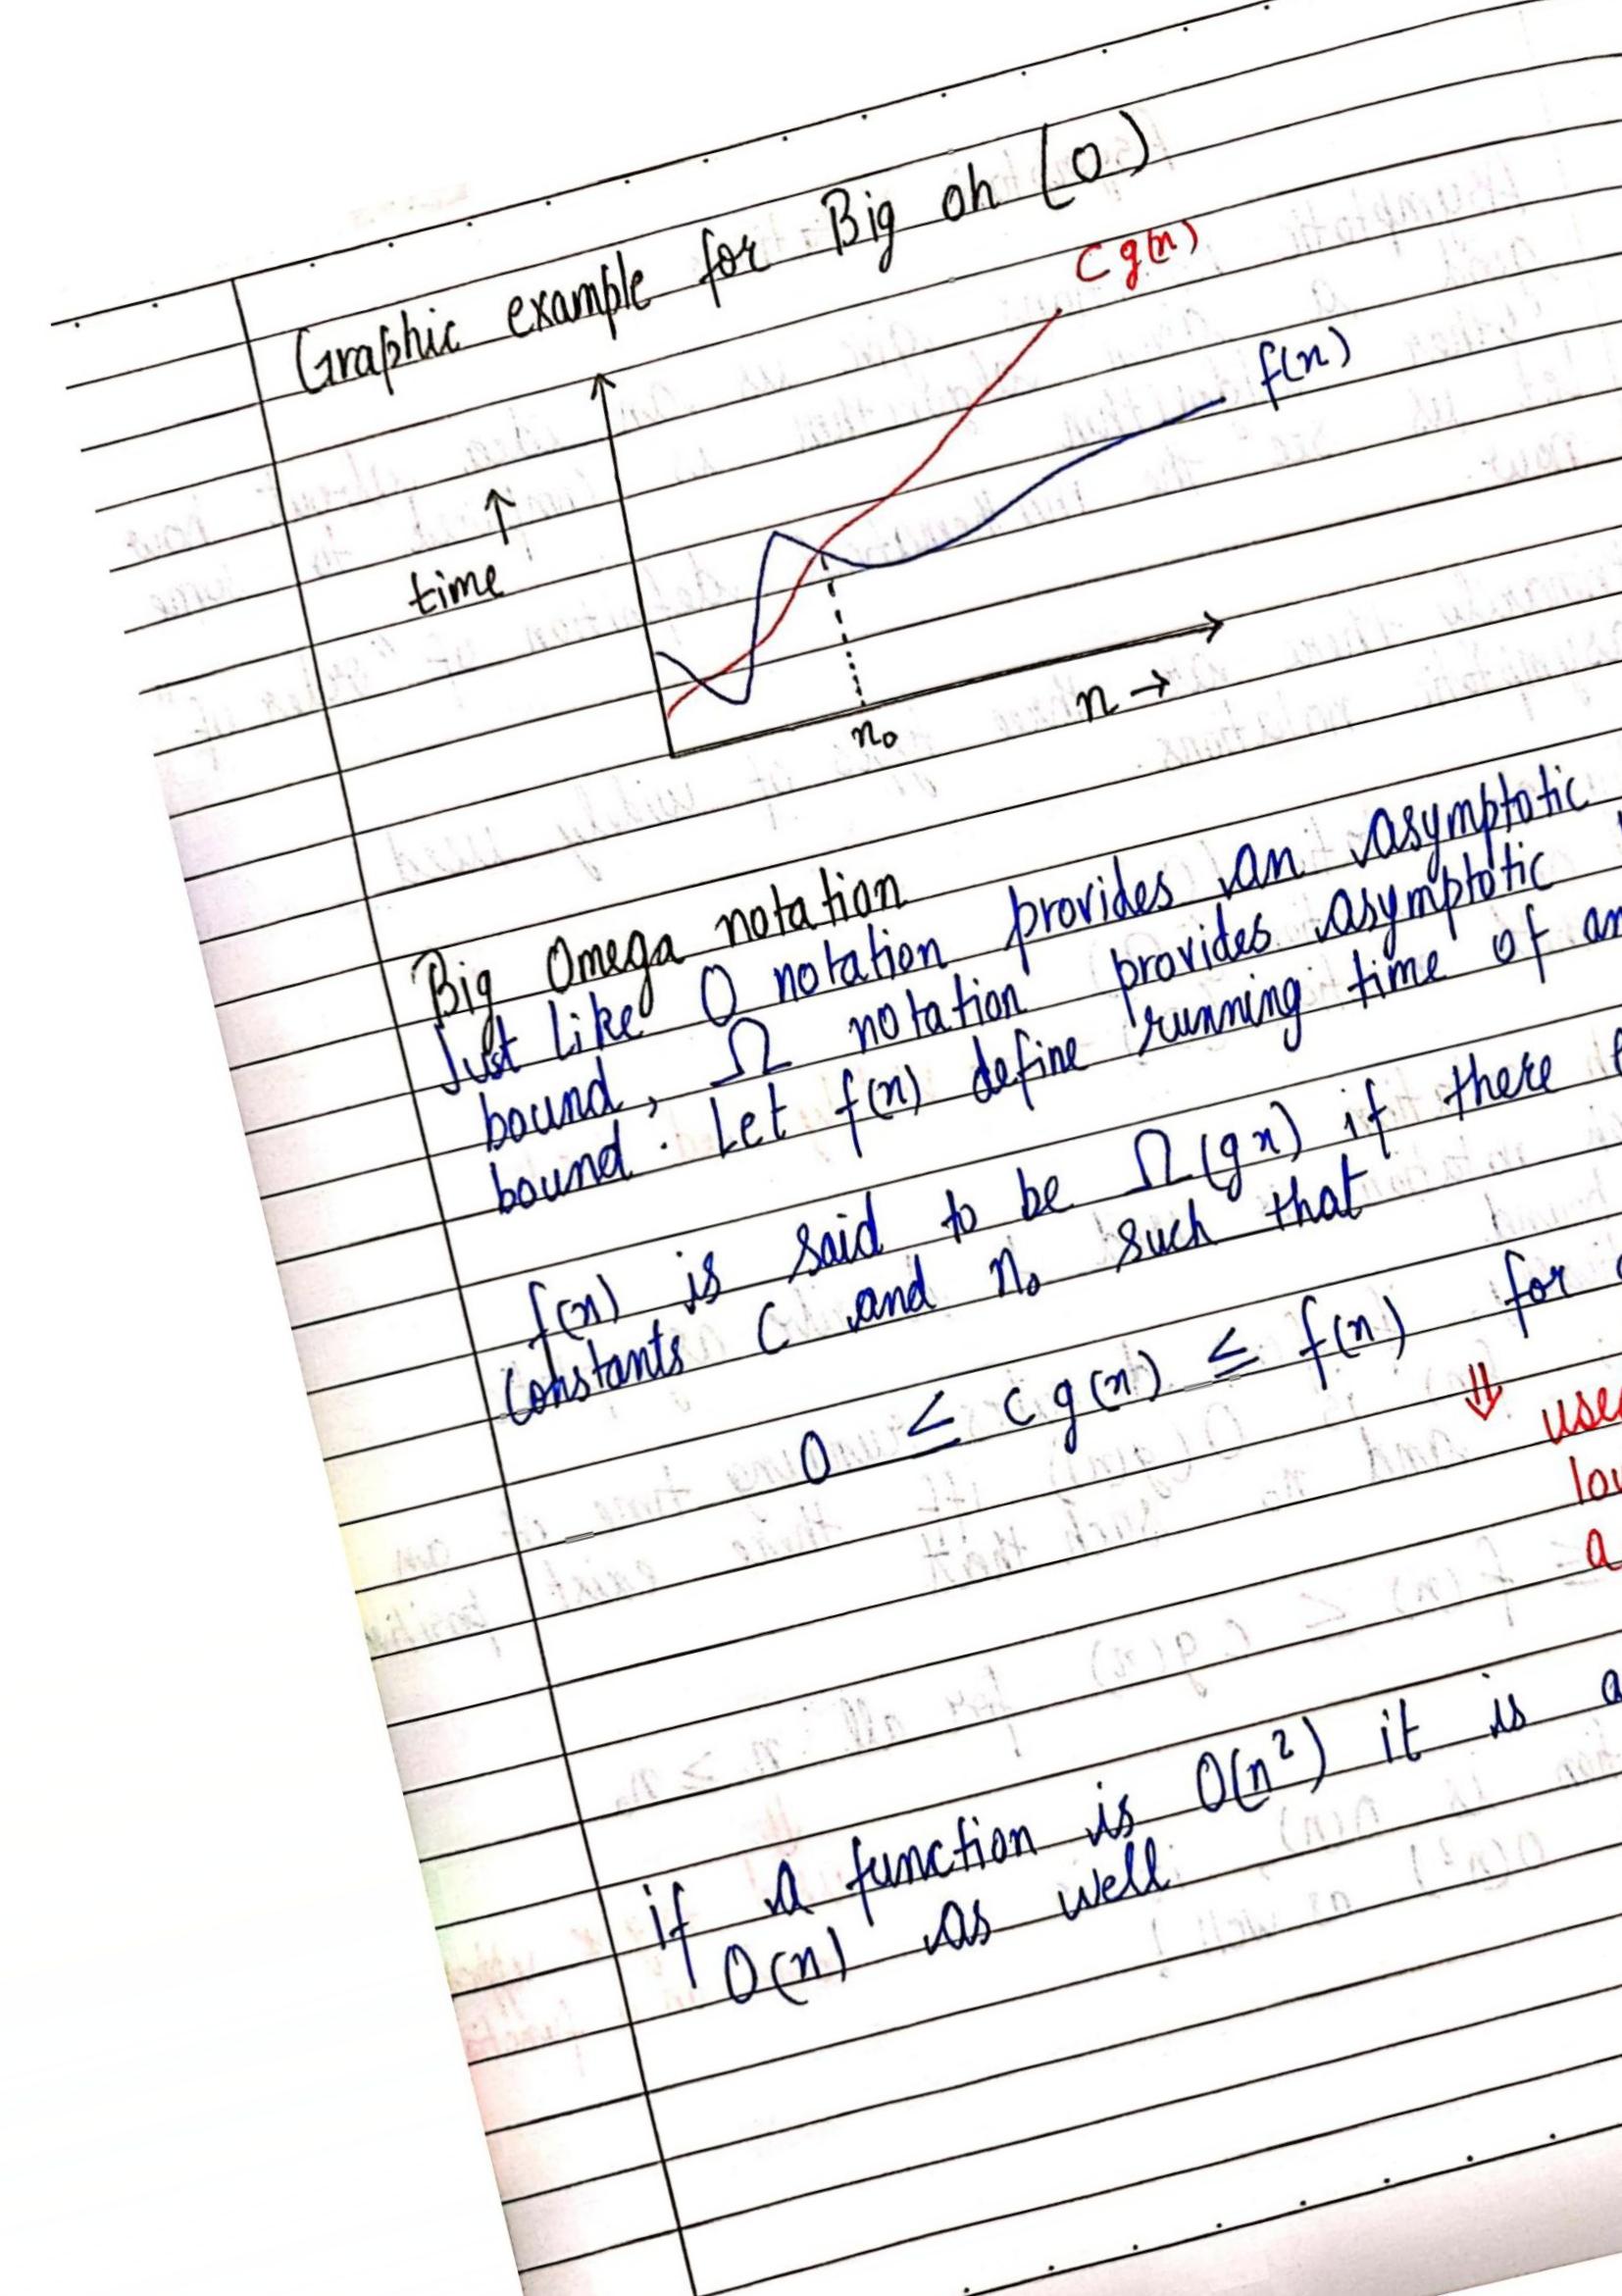 Graphic example for Big oh (O)
C g(n)
f(n)
time
n →
n₀
Big Omega notation
Just like O notation provides an asymptotic
bound, Ω notation provides asymptotic
bound. Let f(n) define running time of an
f(n) is said to be Ω(gn) if there
constants C and n₀ such that
0 ≤ c g(n) ≤ f(n) for
⇓
if a function is O(n²) it is
O(n) as well